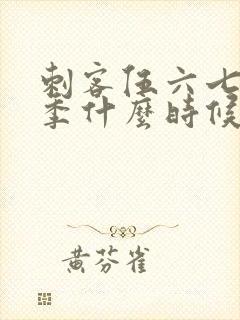 刺客伍六七
季什麼時候
黃芬雀